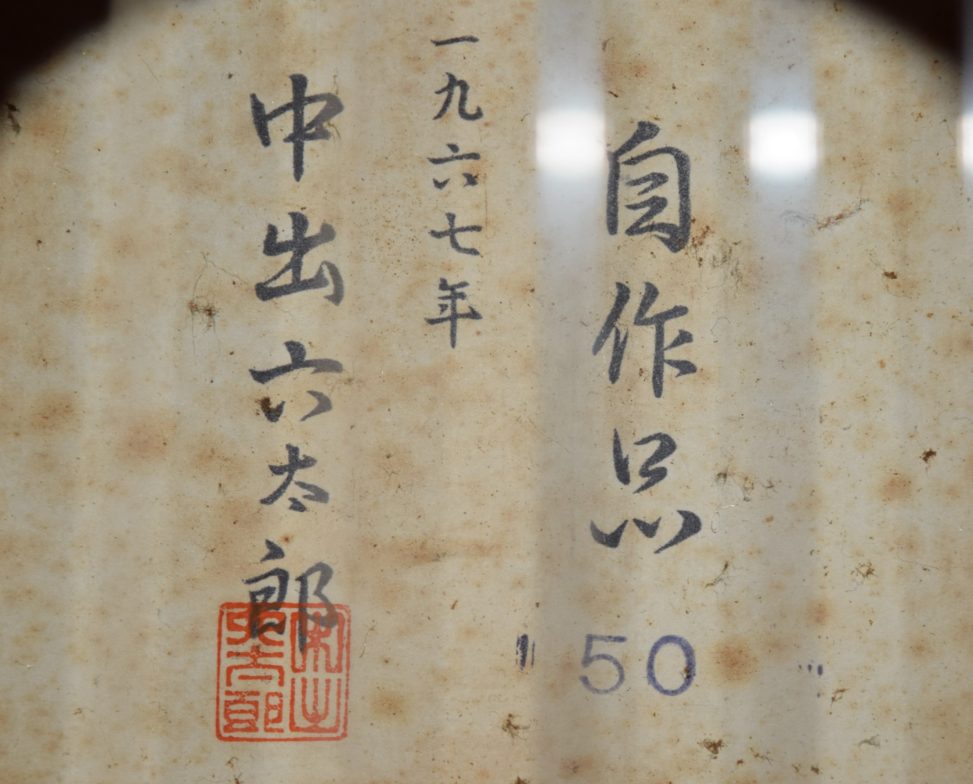 自作品
50
一九六七年
中出六太郎